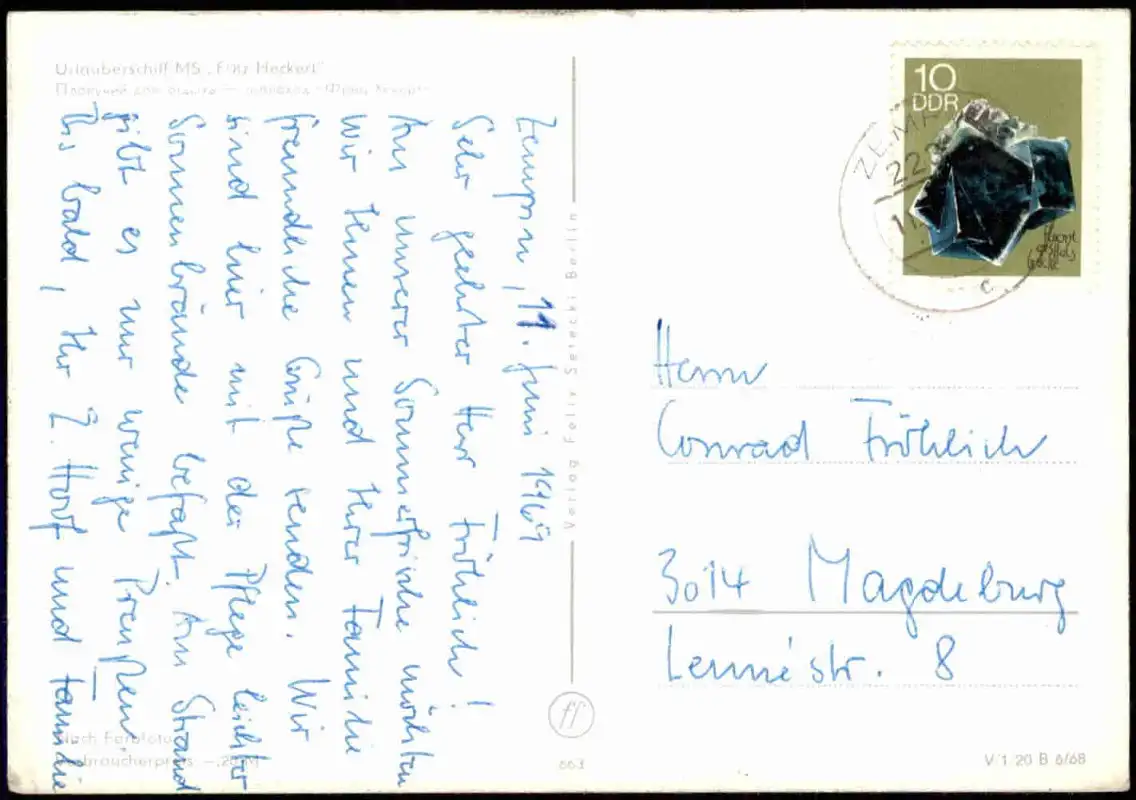 Urlauberschiff MS „Fritz Heckert"
Zempin, 11. Juni 1969
Sehr geehrter Herr Fröhlich!
Aus unserer Sommerfrische möchten
wir Ihnen und Ihrer Familie
freundliche Grüße senden. Wir
sind hier mit der Pflege leichter
Sonnenbrände befaßt. Am Strand
gibt es nur wenige Preußen.
Bis bald, Ihr und Familie
Verlag Felix Setecki Berlin
10
DDR
ZEMP
22
c
Herrn
Conrad Fröhlich
3014 Magdeburg
Lennéstr. 8
Nach Farbfoto
Verbraucherpreis —,20 M
ff
663
V 1 20 B 6/68